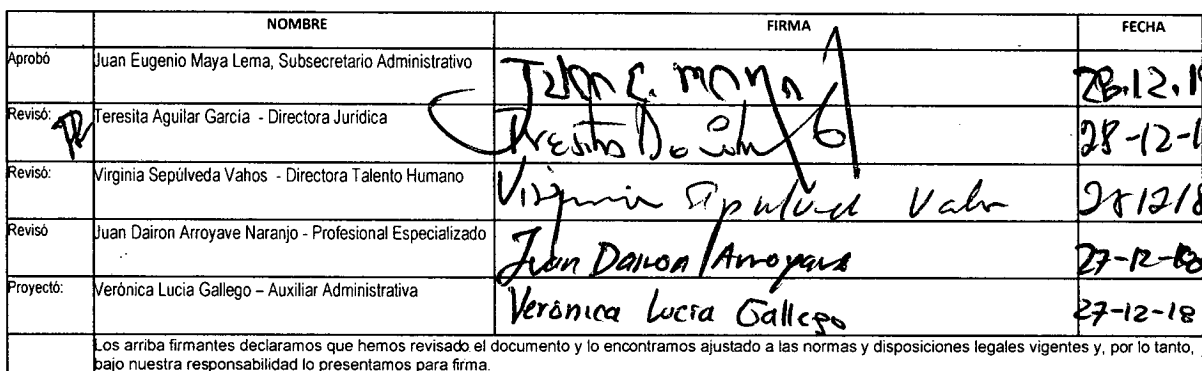 NOMBRE FIRMA FECHA
Aprobó Juan Eugenio Maya Lema, Subsecretario Administrativo Juan E. Maya 28.12.1
Revisó: Teresita Aguilar García - Directora Jurídica Teresita 28-12-1
Revisó: Virginia Sepúlveda Vahos - Directora Talento Humano Virginia Sepulved Vaho 281218
Revisó Juan Dairon Arroyave Naranjo - Profesional Especializado Juan Dairon Arroyave 27-12-
Proyectó: Verónica Lucia Gallego – Auxiliar Administrativa Verónica Lucía Gallego 27-12-18
Los arriba firmantes declaramos que hemos revisado el documento y lo encontramos ajustado a las normas y disposiciones legales vigentes y, por lo tanto,
bajo nuestra responsabilidad lo presentamos para firma.